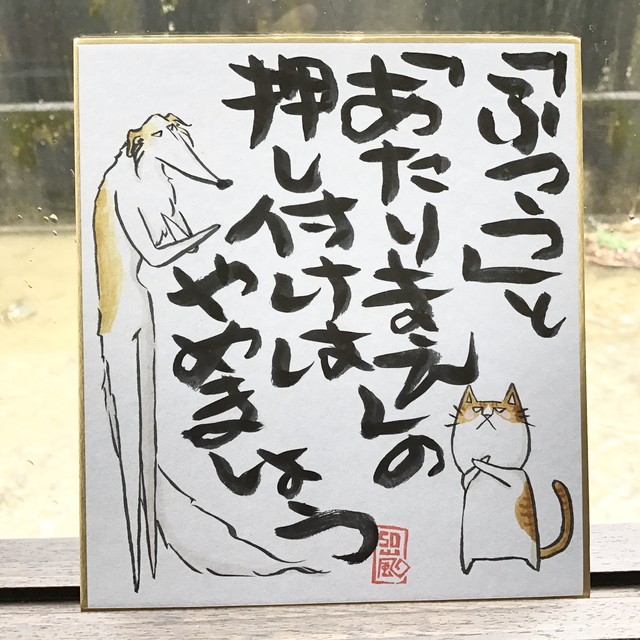 「ふつう」と
「あたりまえ」の
押し付けは
やめましょう